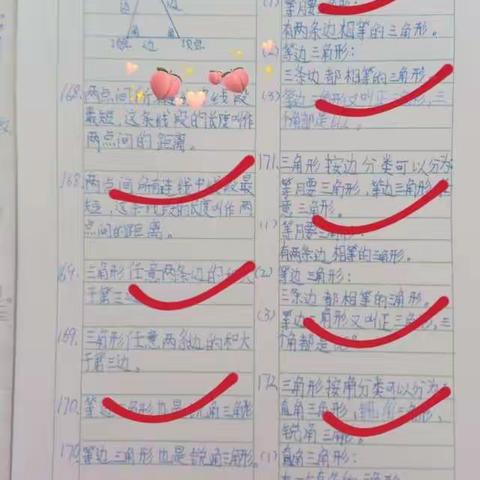 边 边
角 角
顶点 边 顶点
168. 两点间所
最短，这条线段的长度叫作
两点间的距离。
168. 两点间所有连线中线段最
短，这条线段的长度叫作两
点间的距离。
169. 三角形任意两条边的
于第三
169. 三角形任意两条边的和大
于第三边。
170. 等边三角形也是锐角三角形
170. 等边三角形也是锐角三角形。
(1)
等腰三角形：
有两条边相等的三角形。
(2) 等边三角形：
三条边都相等的三角形。
(3) 等边三角形又叫正三角形，三
个角都是
171. 三角形按边分类可以分为
等腰三角形，等边三角形，
意三角形。
(1) 等腰三角形：
有两条边相等的三角形。
(2) 等边三角形：
三条边都相等的三角形。
(3) 等边三角形又叫正三角形，三
个角都是
172. 三角形按角分类可以分为
直角三角形，钝角三角形，
锐角三角形。
(1) 直角三角形：